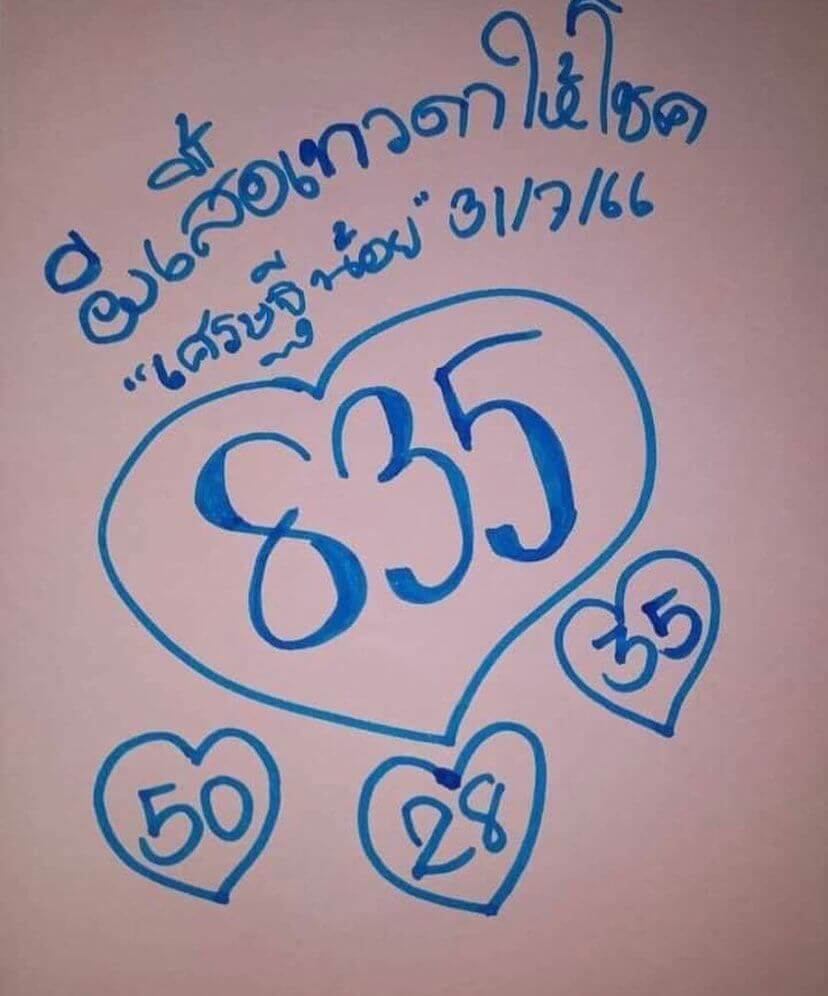 ผีเสื้อเทวดาให้โชค
"เศรษฐีน้อย" 31/7/66
835
35
50
28